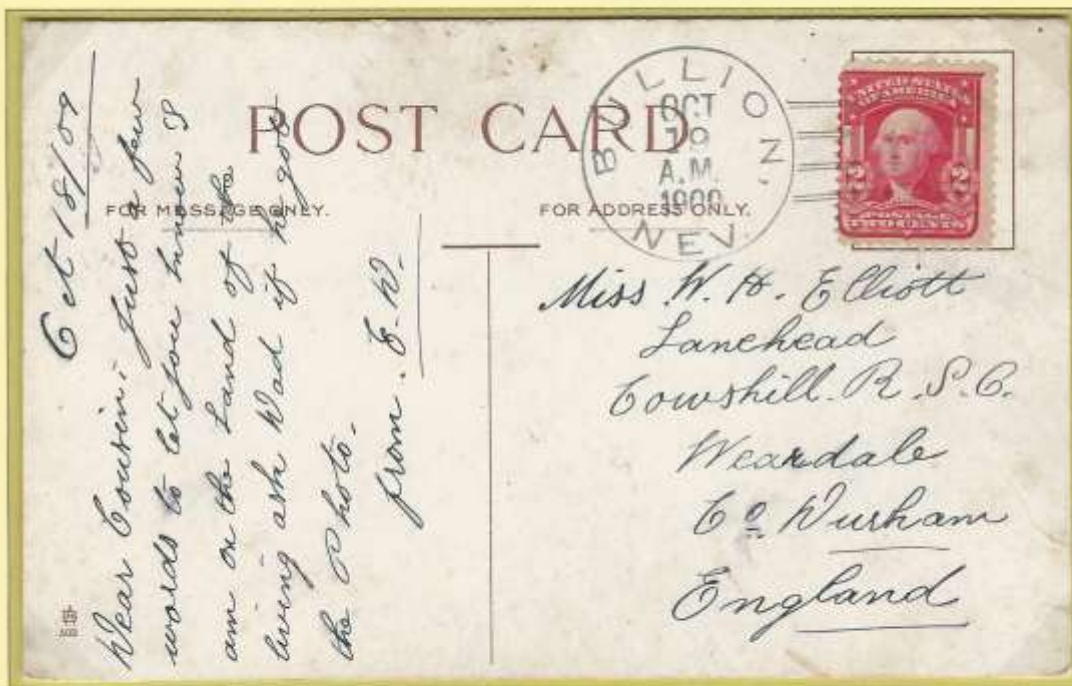 POST CARD
FOR MESSAGE ONLY.
FOR ADDRESS ONLY.
BULLION,
NEV.
OCT
19
A.M.
1909
UNITED STATES
OF AMERICA
2 2
POSTAGE
TWO CENTS
Oct 18/09
Dear Cousin: Just a few
words to let you know I
am on the Land of the
living ask Dad if he got
the Photo.
from. E. W.
Miss W. H. Elliott
Lanehead
Cowshill. R. S. O.
Weardale
Co Durham
England